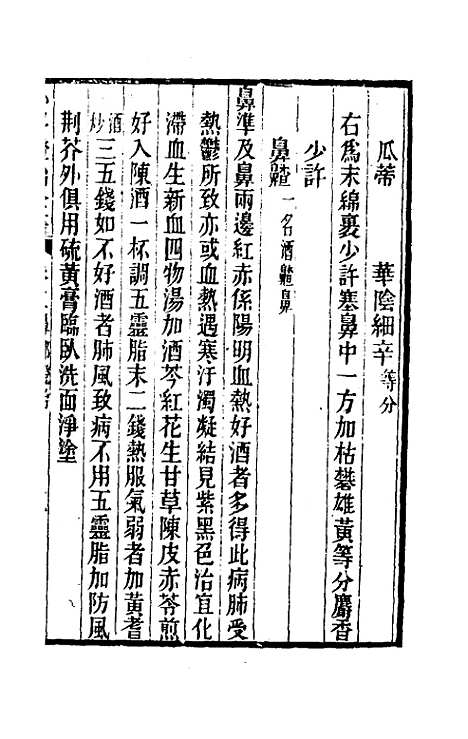 瓜蒂 華陰細辛等分
右爲末綿裹少許塞鼻中一方加枯礬雄黃等分麝香
少許
鼻齇一名酒齇鼻
鼻準及鼻兩邊紅赤係陽明血熱好酒者多得此病肺受
熱鬱所致亦或血熱遇寒汙濁凝結見紫黑色治宜化
滯血生新血四物湯加酒芩紅花生甘草陳皮赤苓煎
好入陳酒一杯調五靈脂末二錢熱服氣弱者加黃耆
酒炒三五錢如不好酒者肺風致病不用五靈脂加防風
荆芥外俱用硫黃膏臨臥洗面淨塗